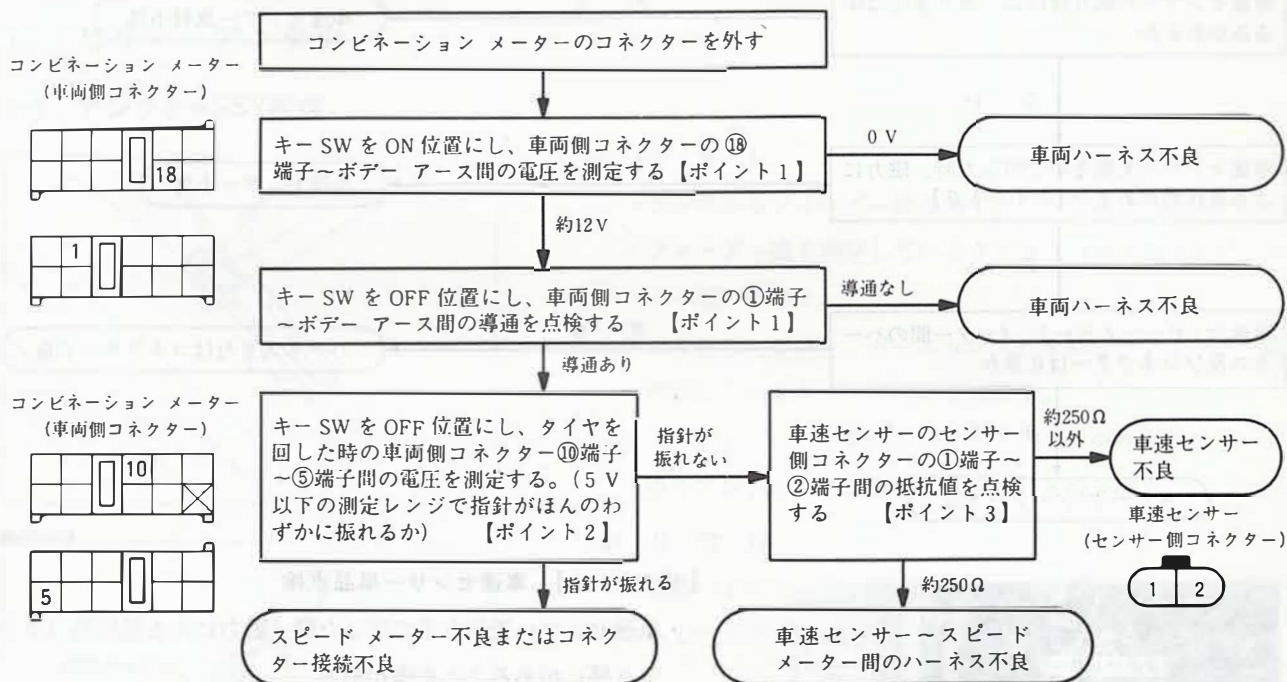 コンビネーション メーターのコネクターを外す
コンビネーション メーター
(車両側コネクター)
18
キー SW を ON 位置にし、車両側コネクターの ⑱
端子～ボデー アース間の電圧を測定する【ポイント1】
0 V
車両ハーネス不良
約12V
1
キー SW を OFF 位置にし、車両側コネクターの①端子
～ボデー アース間の導通を点検する 【ポイント1】
導通なし
車両ハーネス不良
導通あり
コンビネーション メーター
(車両側コネクター)
10
5
キー SW を OFF 位置にし、タイヤを
回した時の車両側コネクター⑩端子
～⑤端子間の電圧を測定する。(5 V
以下の測定レンジで指針がほんのわ
ずかに振れるか) 【ポイント2】
指針が
振れない
車速センサーのセンサー
側コネクターの①端子～
②端子間の抵抗値を点検
する 【ポイント3】
約250Ω
以外
車速センサー
不良
車速センサー
(センサー側コネクター)
1 2
指針が振れる
スピード メーター不良またはコネク
ター接続不良
約250Ω
車速センサー～スピード
メーター間のハーネス不良